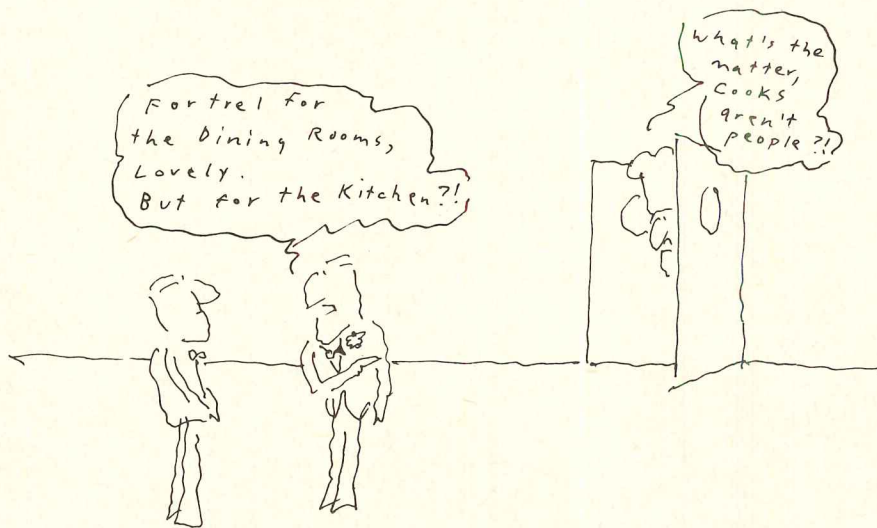 Fortrel for
the Dining Rooms,
Lovely.
But for the Kitchen?!
What's the
matter,
Cooks
aren't
people?!